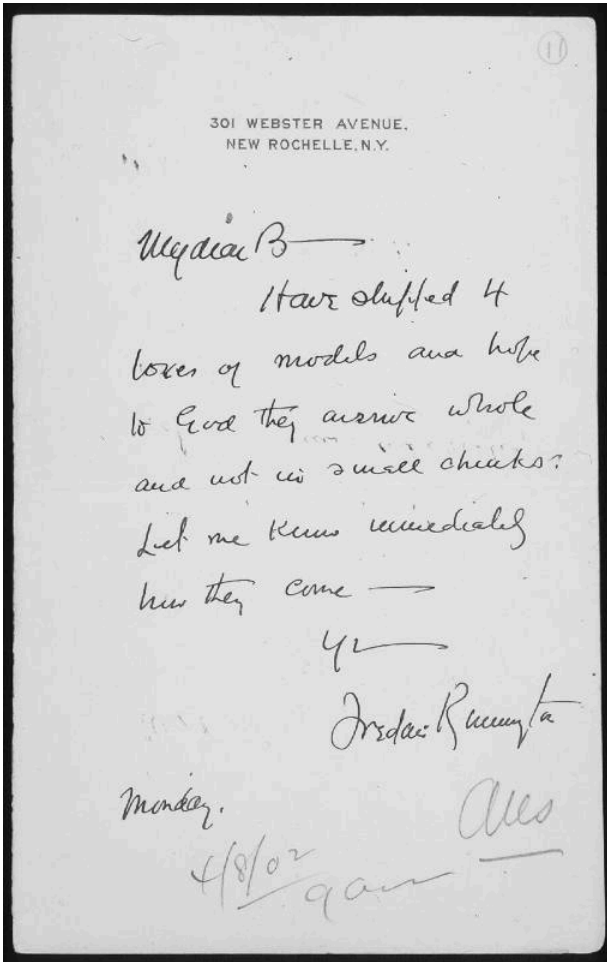 11
301 WEBSTER AVENUE,
NEW ROCHELLE, N.Y.
My dear B—
Have shipped 4
boxes of models and hope
to God they arrive whole
and not in small chunks.
Let me know immediately
how they come —
Yr—
Frederic Remington
Monday.
Ans
4/8/02